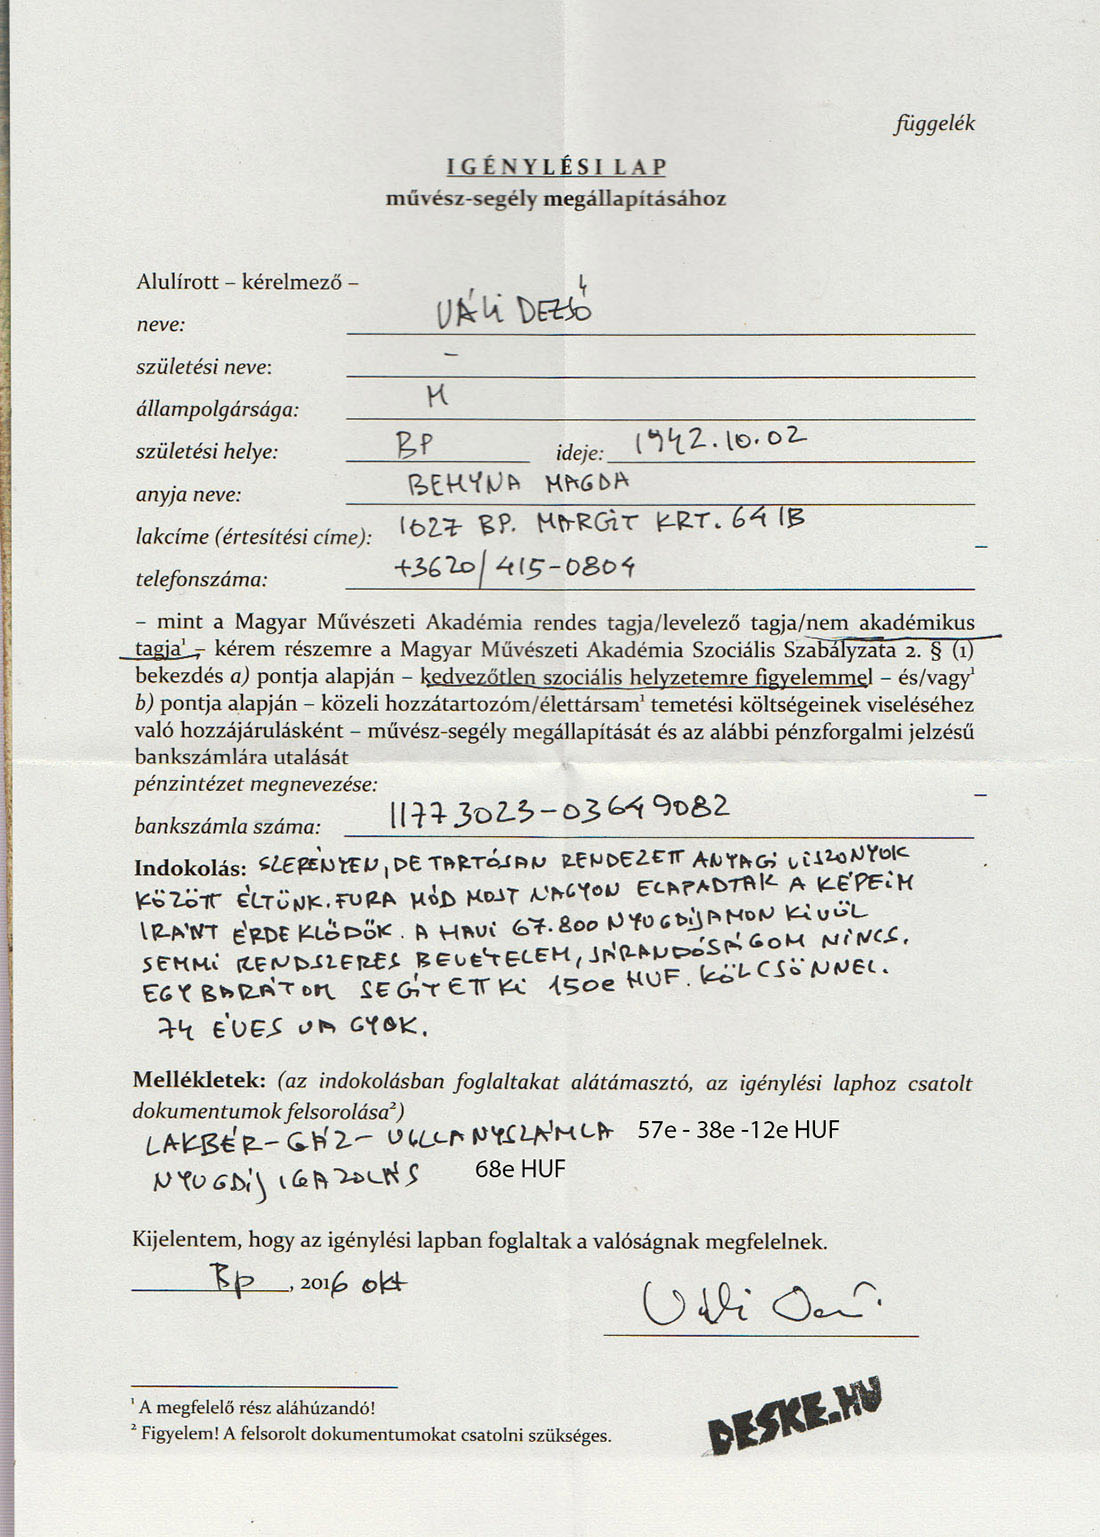 függelék
IGÉNYLÉSI LAP
művész-segély megállapításához
Alulírott – kérelmező –
neve: VÁLI DEZSŐ
születési neve: –
állampolgársága: M
születési helye: BP ideje: 1942.10.02
anyja neve: BEHYNA MAGDA
lakcíme (értesítési címe): 1027 BP. MARGIT KRT. 64/B
telefonszáma: +3620/415-0804
– mint a Magyar Művészeti Akadémia rendes tagja/levelező tagja/nem akadémikus
tagja¹ – kérem részemre a Magyar Művészeti Akadémia Szociális Szabályzata 2. § (1)
bekezdés a) pontja alapján – kedvezőtlen szociális helyzetemre figyelemmel – és/vagy¹
b) pontja alapján – közeli hozzátartozóm/élettársam¹ temetési költségeinek viseléséhez
való hozzájárulásként – művész-segély megállapítását és az alábbi pénzforgalmi jelzésű
bankszámlára utalását
pénzintézet megnevezése:
bankszámla száma: 11773023-03649082
Indokolás: SZERÉNYEN, DE TARTÓSAN RENDEZETT ANYAGI VISZONYOK
KÖZÖTT ÉLTÜNK. FURA MÓD MOST NAGYON ELAPADTAK A KÉPEIM
IRÁNT ÉRDEKLŐDŐK. A HAVI 67.800 NYUGDÍJAMON KIVÜL
SEMMI RENDSZERES BEVÉTELEM, JÁRANDÓSÁGOM NINCS.
EGY BARÁTOM SEGÍTETT KI 150e HUF. KÖLCSÖNNEL.
74 ÉVES VAGYOK.
Mellékletek: (az indokolásban foglaltakat alátámasztó, az igénylési laphoz csatolt
dokumentumok felsorolása²)
LAKBÉR-GÁZ-VILLANYSZÁMLA 57e - 38e -12e HUF
NYUGDÍJ IGAZOLÁS 68e HUF
Kijelentem, hogy az igénylési lapban foglaltak a valóságnak megfelelnek.
Bp, 2016 okt
Váli Dezső
¹ A megfelelő rész aláhúzandó!
² Figyelem! A felsorolt dokumentumokat csatolni szükséges.
DESKE.HU